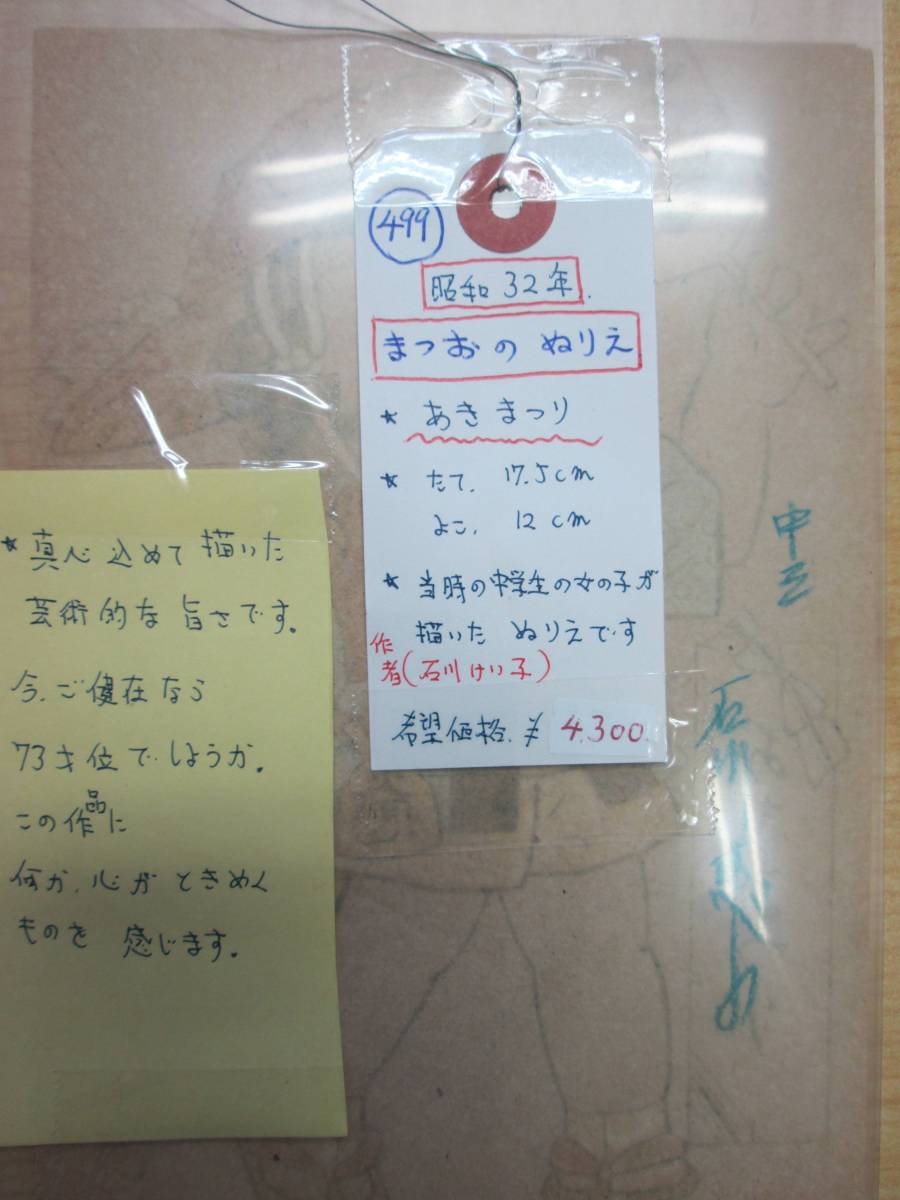 499
昭和32年.
まつおのぬりえ
★ あきまつり
★ たて. 17.5cm
よこ. 12cm
★ 当時の中学生の女の子が
描いた ぬりえです
作者(石川けい子)
希望価格. ¥4.300.
★ 真心込めて描いた
芸術的な旨さです。
今、ご健在なら
73才位でしようか。
この作品に
何か、心がときめく
ものを 感じます。
中三
石川